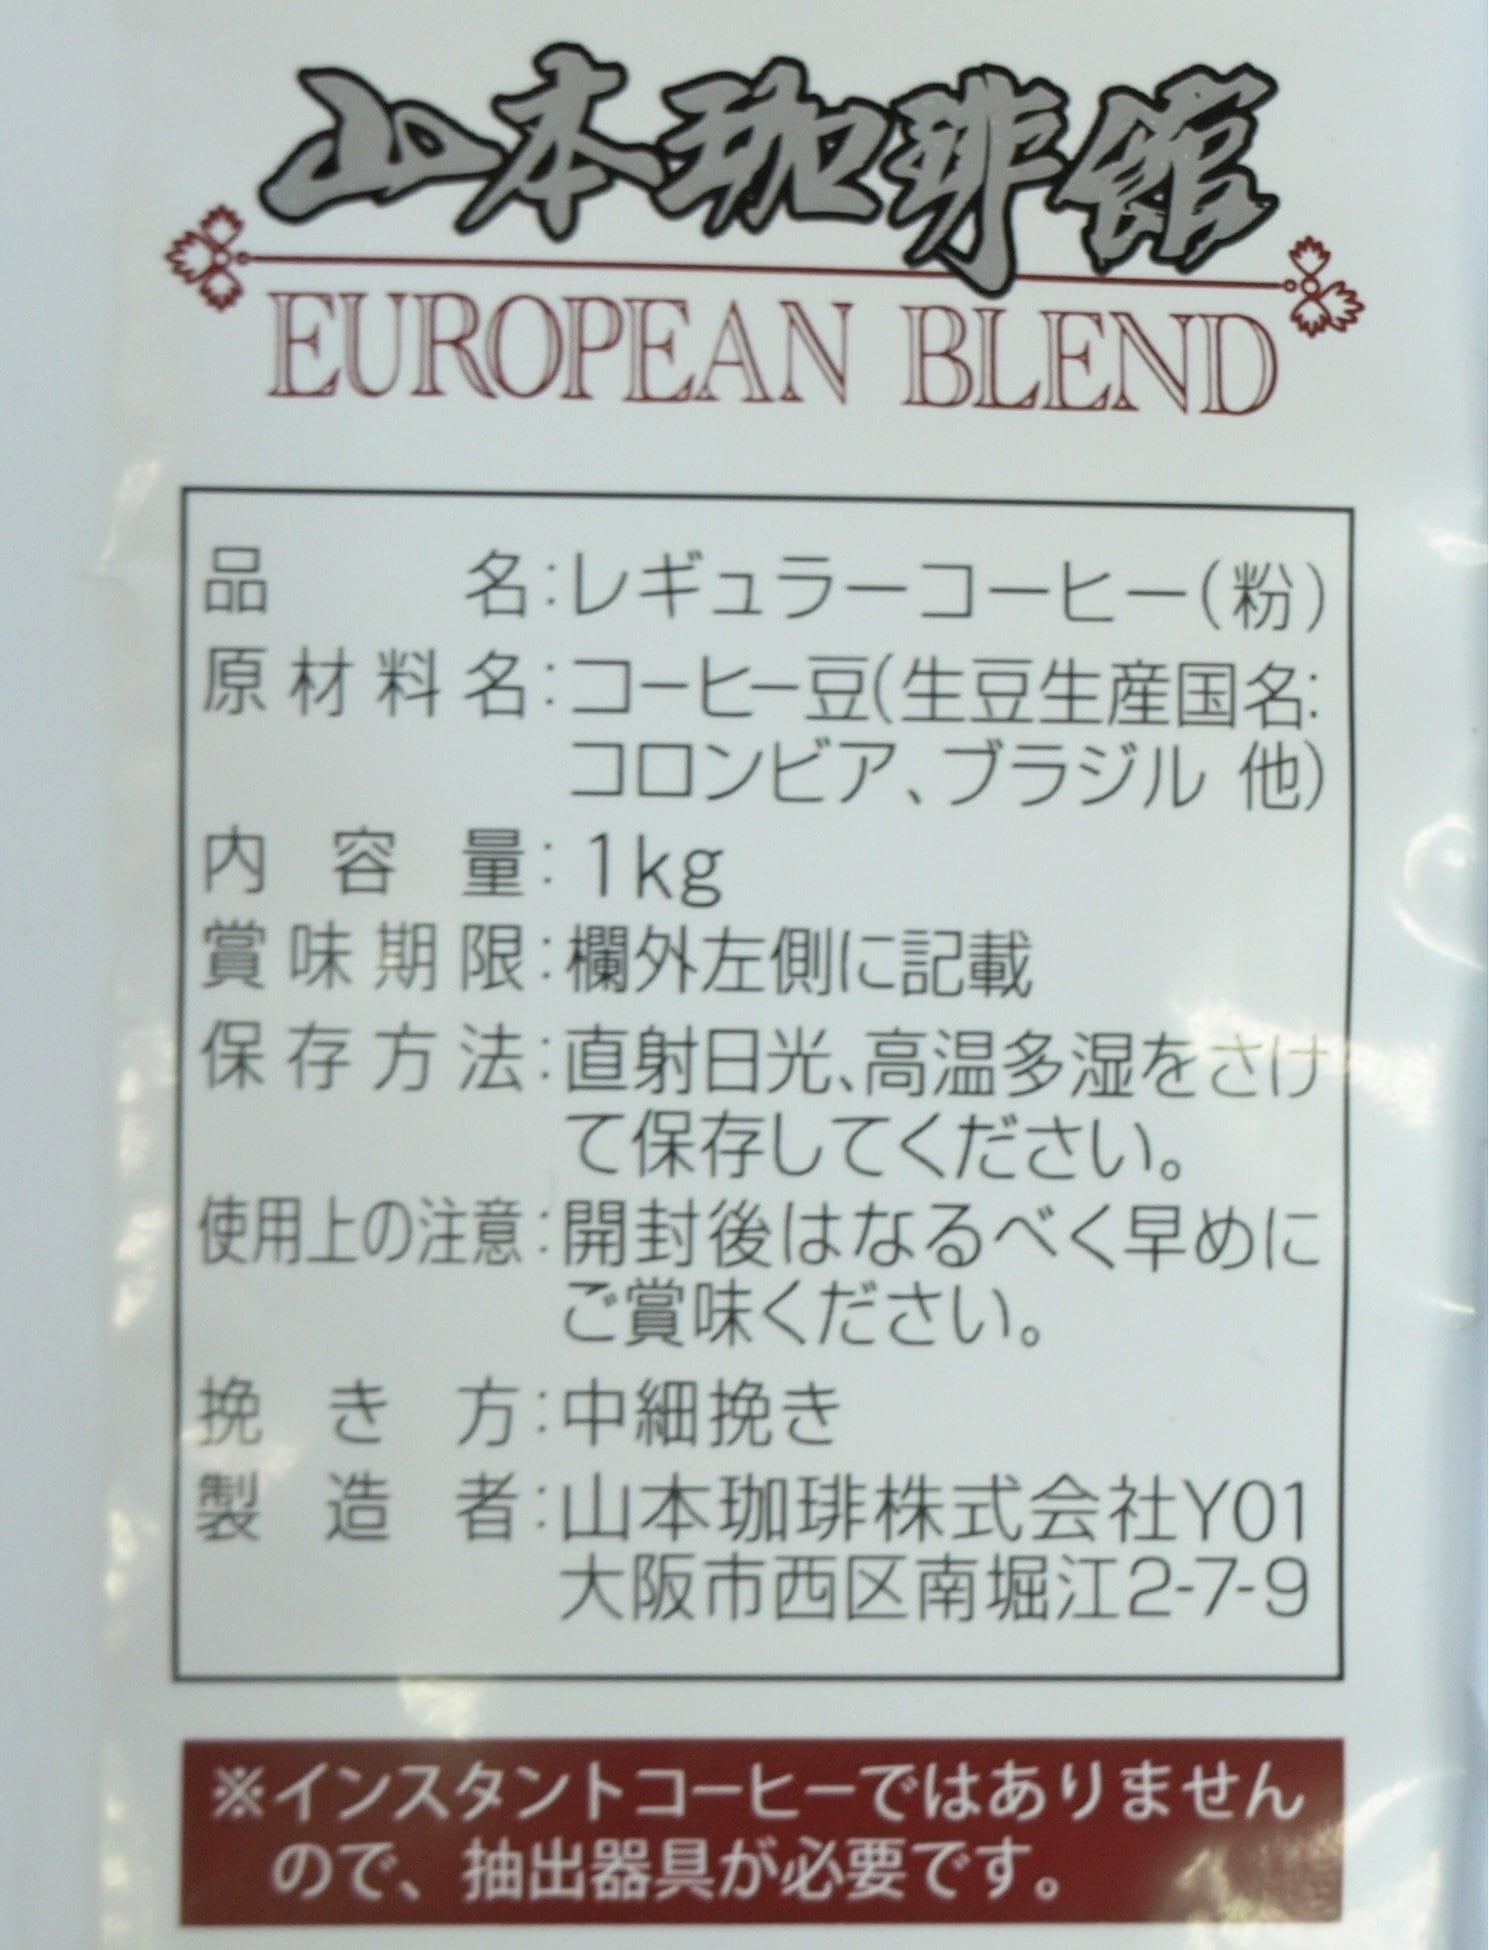 山本珈琲館
EUROPEAN BLEND
品名:レギュラーコーヒー(粉)
原材料名:コーヒー豆(生豆生産国名:
コロンビア、ブラジル 他)
内容量:1kg
賞味期限:欄外左側に記載
保存方法:直射日光、高温多湿をさけ
て保存してください。
使用上の注意:開封後はなるべく早めに
ご賞味ください。
挽き方:中細挽き
製造者:山本珈琲株式会社Y01
大阪市西区南堀江2-7-9
※インスタントコーヒーではありません
ので、抽出器具が必要です。